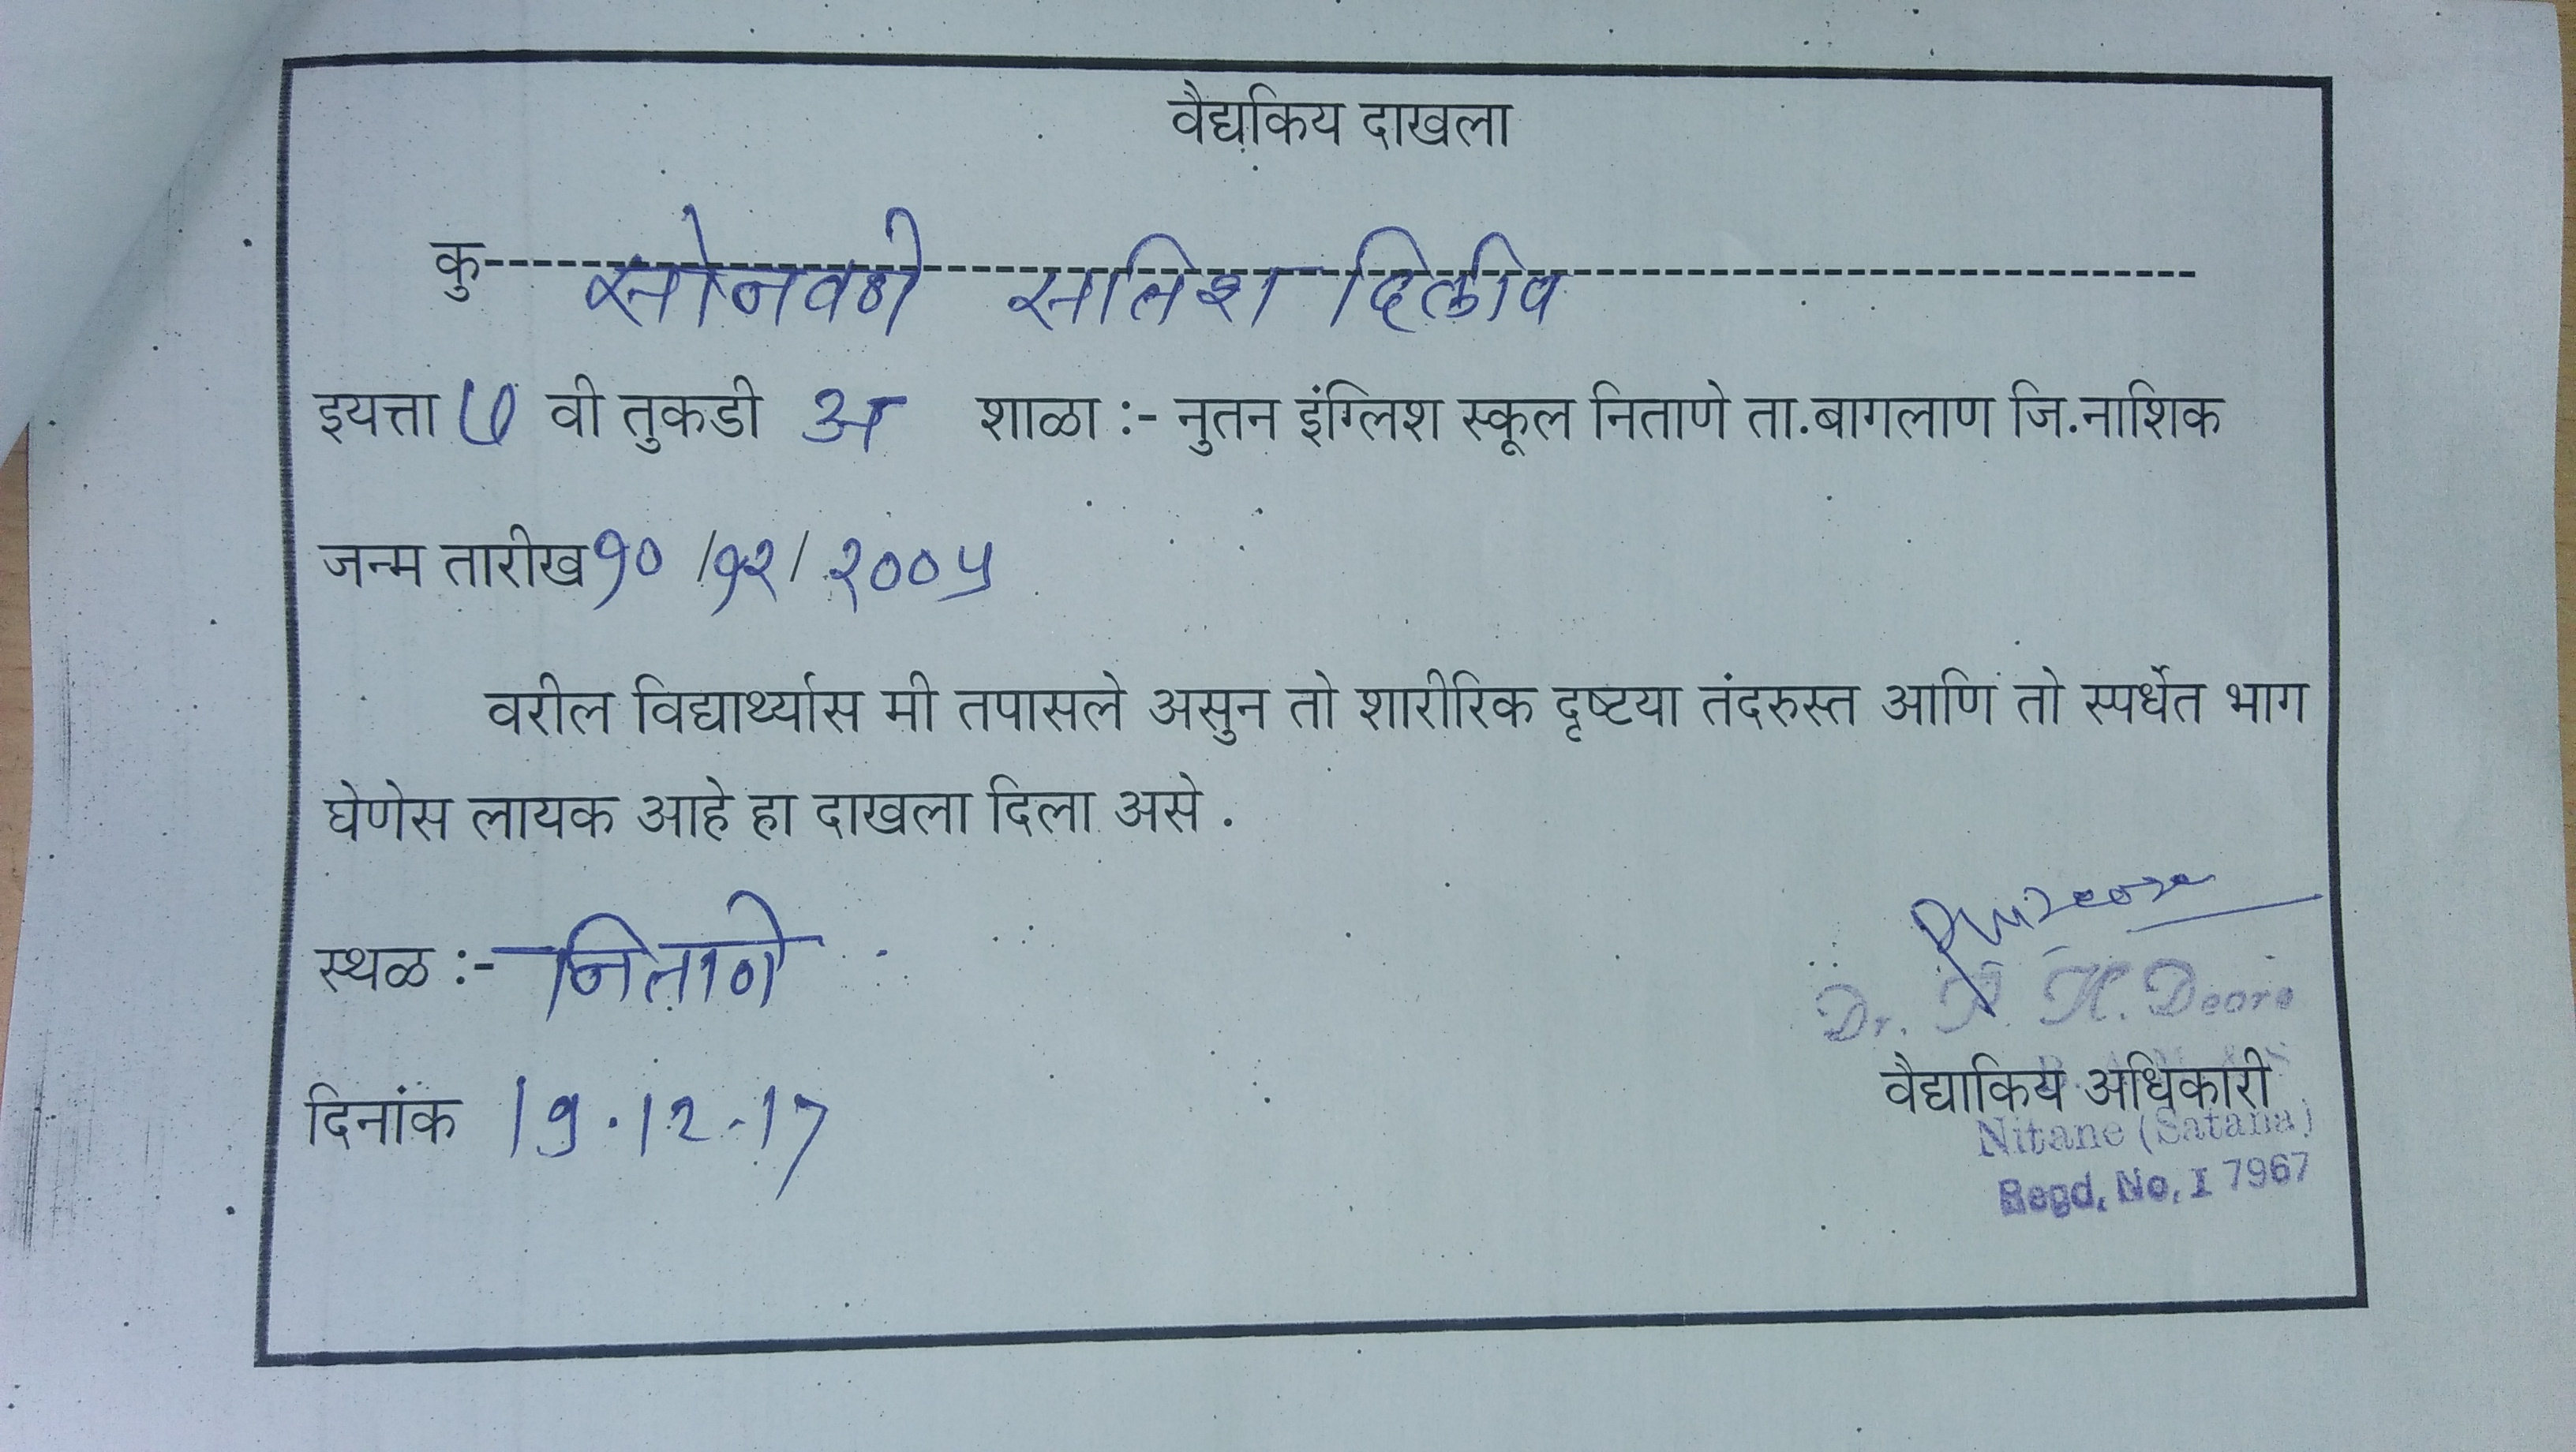 वैद्यकिय दाखला
कु सोनवणे सतिश दिलीप
इयत्ता ७ वी तुकडी अ शाळा :- नुतन इंग्लिश स्कूल निताणे ता.बागलाण जि.नाशिक
जन्म तारीख १० /१२/ २००५
वरील विद्यार्थ्यास मी तपासले असुन तो शारीरिक दृष्टया तंदरुस्त आणि तो स्पर्धेत भाग
घेणेस लायक आहे हा दाखला दिला असे .
स्थळ :- निताणे
Dr. H. Deore
वैद्याकिय अधिकारी
दिनांक 19.12.17
Nitane (Satana)
Regd, No, I 7967